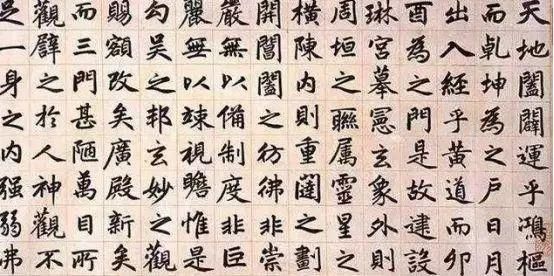 天地闔闢運乎鴻樞
而乹坤為之戶日月
出入經乎黃道而卯
酉為之門是故建設
琳宮摹憲玄象外則
周垣之聯屬靈星之
橫陳內則重闥之劃
開閶闔之彷彿非崇
嚴無以備制度非巨
麗無以竦視瞻惟是
勾吳之邦玄妙之觀
賜額改矣廣殿新矣
而三門甚陋萬目所
觀譬之於人神觀不
足一身之內强弱弗